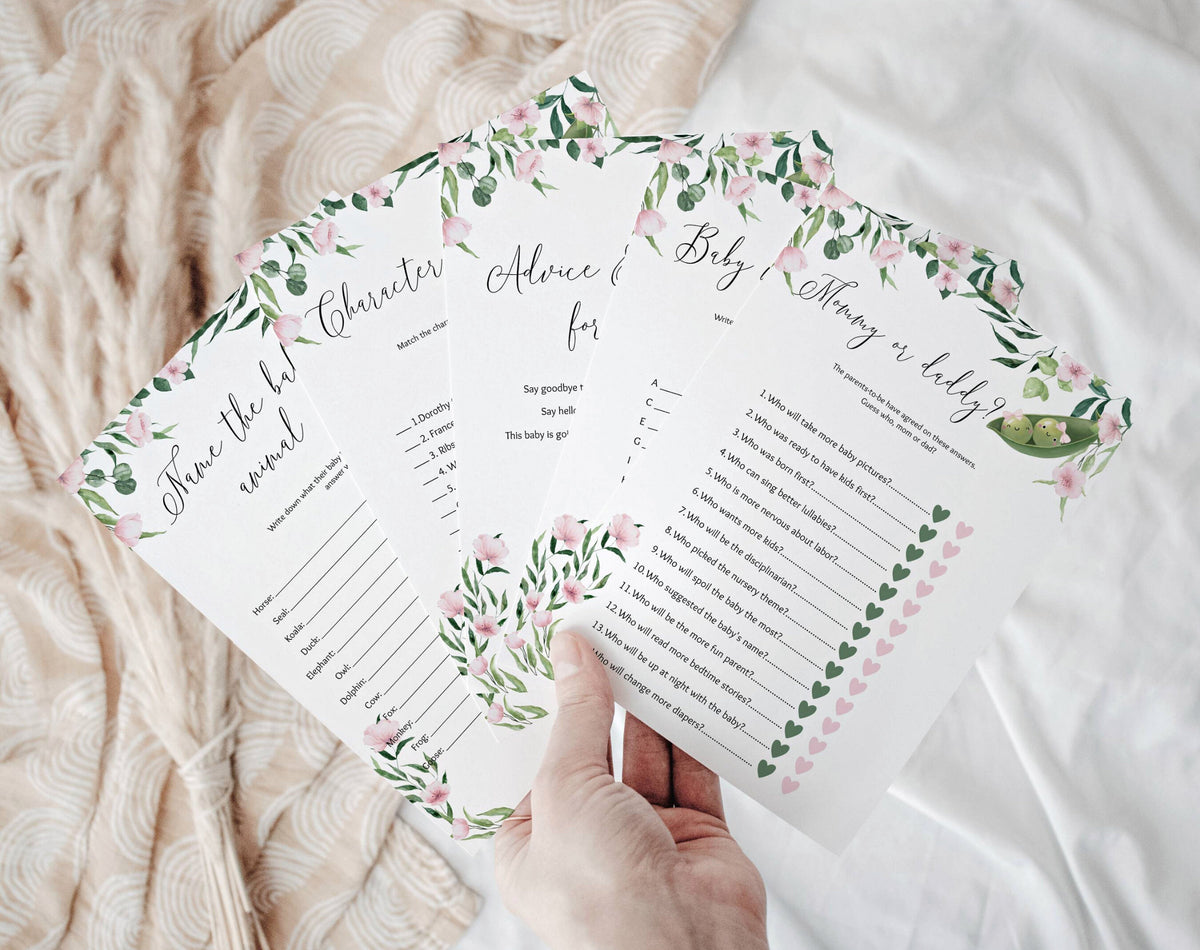 Name the ba
animal
Write down what their baby
answer
Horse:
Seal:
Koala:
Duck:
Elephant:
Owl:
Dolphin:
Cow:
Fox:
Monkey:
Frog:
Goose:
Character
Match the char
1.Dorothy
2. France
3. Ribs
4. W
5.
Advice
for
Say goodbye t
Say hello
This baby is goi
Baby
Write
A
C
E
G
I
Mommy or daddy?
The parents-to-be have agreed on these answers.
Guess who, mom or dad?
1. Who will take more baby pictures?
2. Who was ready to have kids first?
3. Who was born first?
4. Who can sing better lullabies?
5. Who is more nervous about labor?
6. Who wants more kids?
7. Who will be the disciplinarian?
8. Who picked the nursery theme?
9. Who will spoil the baby the most?
10. Who suggested the baby's name?
11. Who will be the more fun parent?
12. Who will read more bedtime stories?
13. Who will be up at night with the baby?
Who will change more diapers?